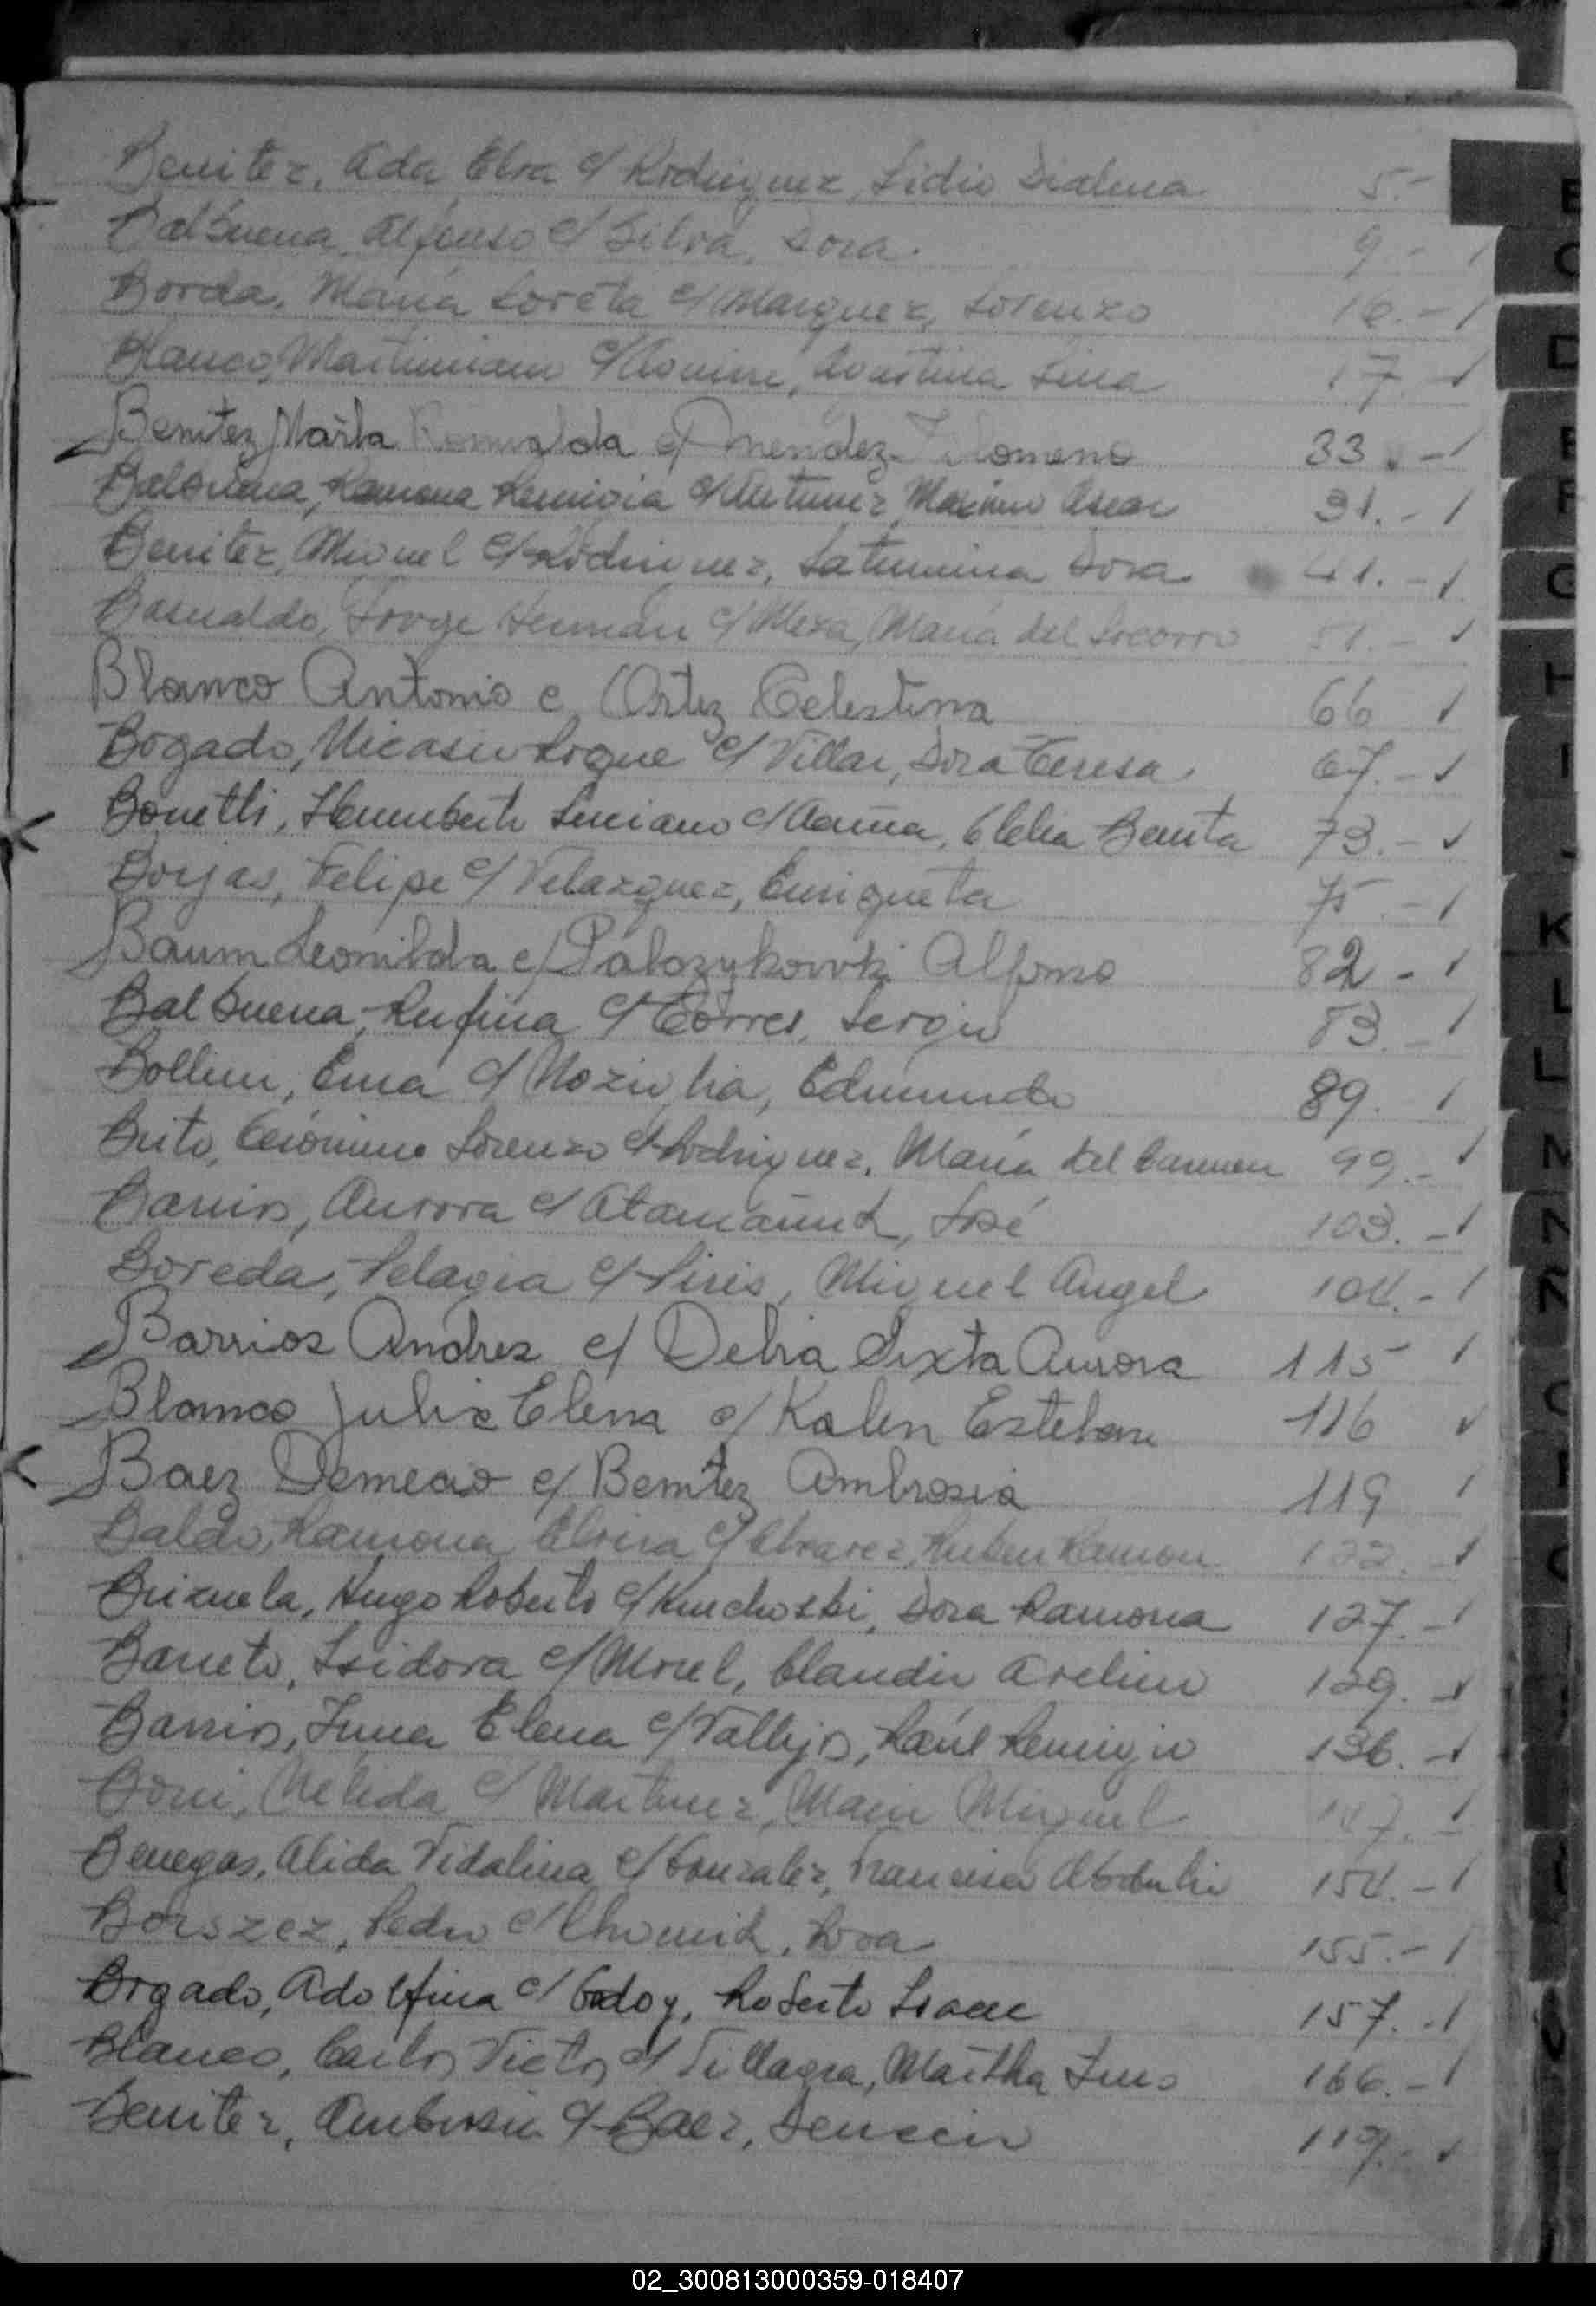 Benitez, Ada Elva c/ Rodriguez, Lidio Dialma 5.-
Balbuena, Alfonso c/ Silva, Dora. 9.- /
Borda, María Loreta c/ Marquez, Lorenzo 16.- /
Blanco, Martiniano c/ Aguirre, Lina 17.- /
Benitez, Marta Romualda c/ Mendez Filomeno 33.- /
Balbuena, Ramona Remigia c/ Antunez, Maximo Oscar 31.- /
Benitez, Miguel c/ Rodriguez, Saturnina Dora. 41.- /
Basualdo, Jorge Hernán c/ Meza, María del Socorro 51.- /
Blanco Antonio c Ortiz Celestina 66 /
Bogado, Nicasio Roque c/ Villar, Dora Teresa. 67.- /
Bonetti, Humberto Luciano c/ Acuña, Clelia Benita 73.- /
Borjas, Felipe c/ Velazquez, Enriqueta 75.- /
Baum Leonilda c/ Alfonso 82 - /
Balbuena, Rufina c/ Torres, Sergio 83.- /
Ema c/ Noziglia, Edmundo 89. /
Brito, Gerónimo Lorenzo c/ Rodriguez, María del Carmen 99.- /
Barrios, Aurora c/ José 103.- /
Boreda, Pelagia c/ Piris, Miguel Angel 104.- /
Barrios Andres c/ Delia Sixta Aurora 115 /
Blanco Julia Elena c/ Kalen Esteban 116 /
Baez Demecio c/ Benitez Ambrosia 119 /
Baldo, Ramona Elvira c/ Alvarez, Ruben Ramon 122.- /
Brizuela, Hugo Roberto c/ Dora Ramona 127.- /
Barreto, Isidora c/ Morel, Claudio Avelino 129.- /
Barrios, Irma Elena c/ Vallejos, Raúl Remigio 136.- /
Boni, Nelida c/ Martinez, Mario Miguel 147.- /
Benegas, Alida Vidalina c/ Gonzalez, Francisco Obdulio 154.- /
Borszez, Pedro c/ Rosa 155.- /
Bogado, Adolfina c/ Godoy, Roberto Isaac 157.- /
Blanco, Carlos Victor c/ Villagra, Martha Ines 166.- /
Benitez, Ambrosia c/ Baez, Demecio 119.- /
E
C
D
E
F
G
H
I
J
K
L
L
M
N
Ñ
O
P
02_300813000359-018407